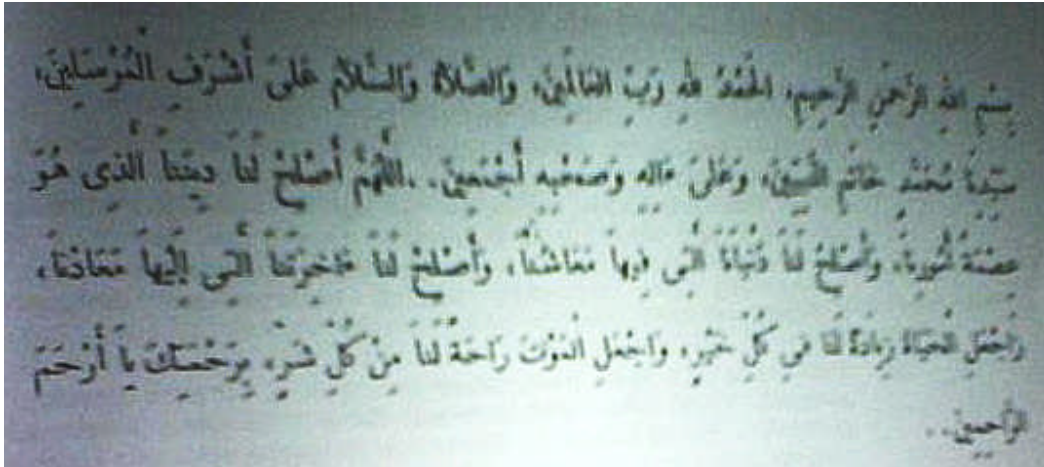 بِسْمِ اللهِ الرَّحْمٰنِ الرَّحِيمِ، الْحَمْدُ للهِ رَبِّ الْعَالَمِينَ، وَالصَّلَاةُ وَالسَّلَامُ عَلَىٰ أَشْرَفِ الْمُرْسَلِينَ،
سَيِّدِنَا مُحَمَّدٍ خَاتَمِ النَّبِيِّينَ، وَعَلَىٰ ءَالِهِ وَصَحْبِهِ أَجْمَعِينَ. .اللَّهُمَّ أَصْلِحْ لَنَا دِينَنَا الَّذِى هُوَ
عِصْمَةُ أُمُورِنَا، وَأَصْلِحْ لَنَا دُنْيَانَا الَّتِى فِيهَا مَعَاشُنَا، وَأَصْلِحْ لَنَا ءَاخِرَتَنَا الَّتِى إِلَيْهَا مَعَادُنَا،
وَاجْعَلِ الْحَيَاةَ زِيَادَةً لَنَا فِي كُلِّ خَيْرٍ، وَاجْعَلِ الْمَوْتَ رَاحَةً لَنَا مِنْ كُلِّ شَرٍّ، بِرَحْمَتِكَ يَا أَرْحَمَ
الرَّاحِمِينَ. .